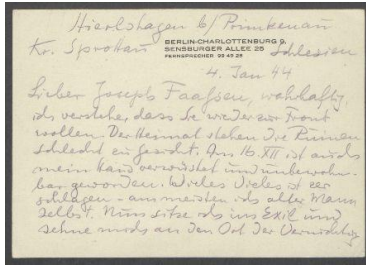 Hierlshagen b/ Primkenau
Kr. Sprottau
BERLIN-CHARLOTTENBURG 9,
SENSBURGER ALLEE 26
FERNSPRECHER 99 43 25
Schlesien
4. Jan 44
Lieber Joseph Faassen, wahrhaftig,
ich verstehe, dass Sie wieder zur Front
wollen. Der Heimat stehen die Ruinen
schlecht zu Gesicht. Am 16. XII ist auch
mein Haus verwüstet und unbewohn-
bar geworden. Vieles Vieles ist zer
schlagen - am meisten ich alter Mann
selbst. Nun sitze ich im Exil und
sehne mich an den Ort der Vernichtung